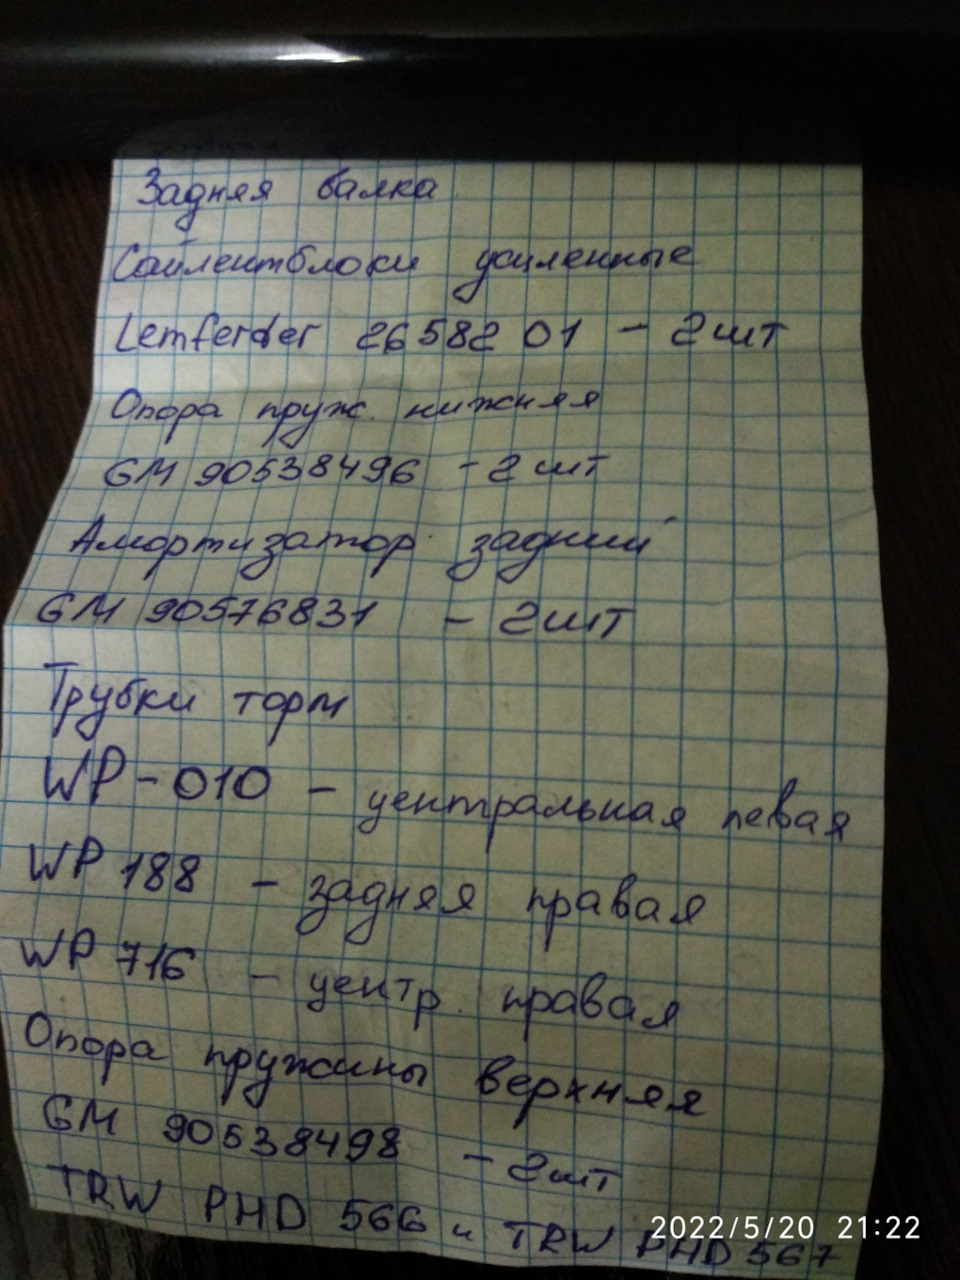 Задняя балка
Сайлентблоки усиленные
Lemferder 26582 01 - 2шт
Опора пруж. нижняя
GM 90538496 - 2шт
Амортизатор задний
GM 90576831 - 2шт
Трубки торм
WP-010 - центральная левая
WP 188 - задняя правая
WP 716 - центр. правая
Опора пружины верхняя
GM 90538498 - 2шт
TRW PHD 566 и TRW PHD 567
2022/5/20 21:22